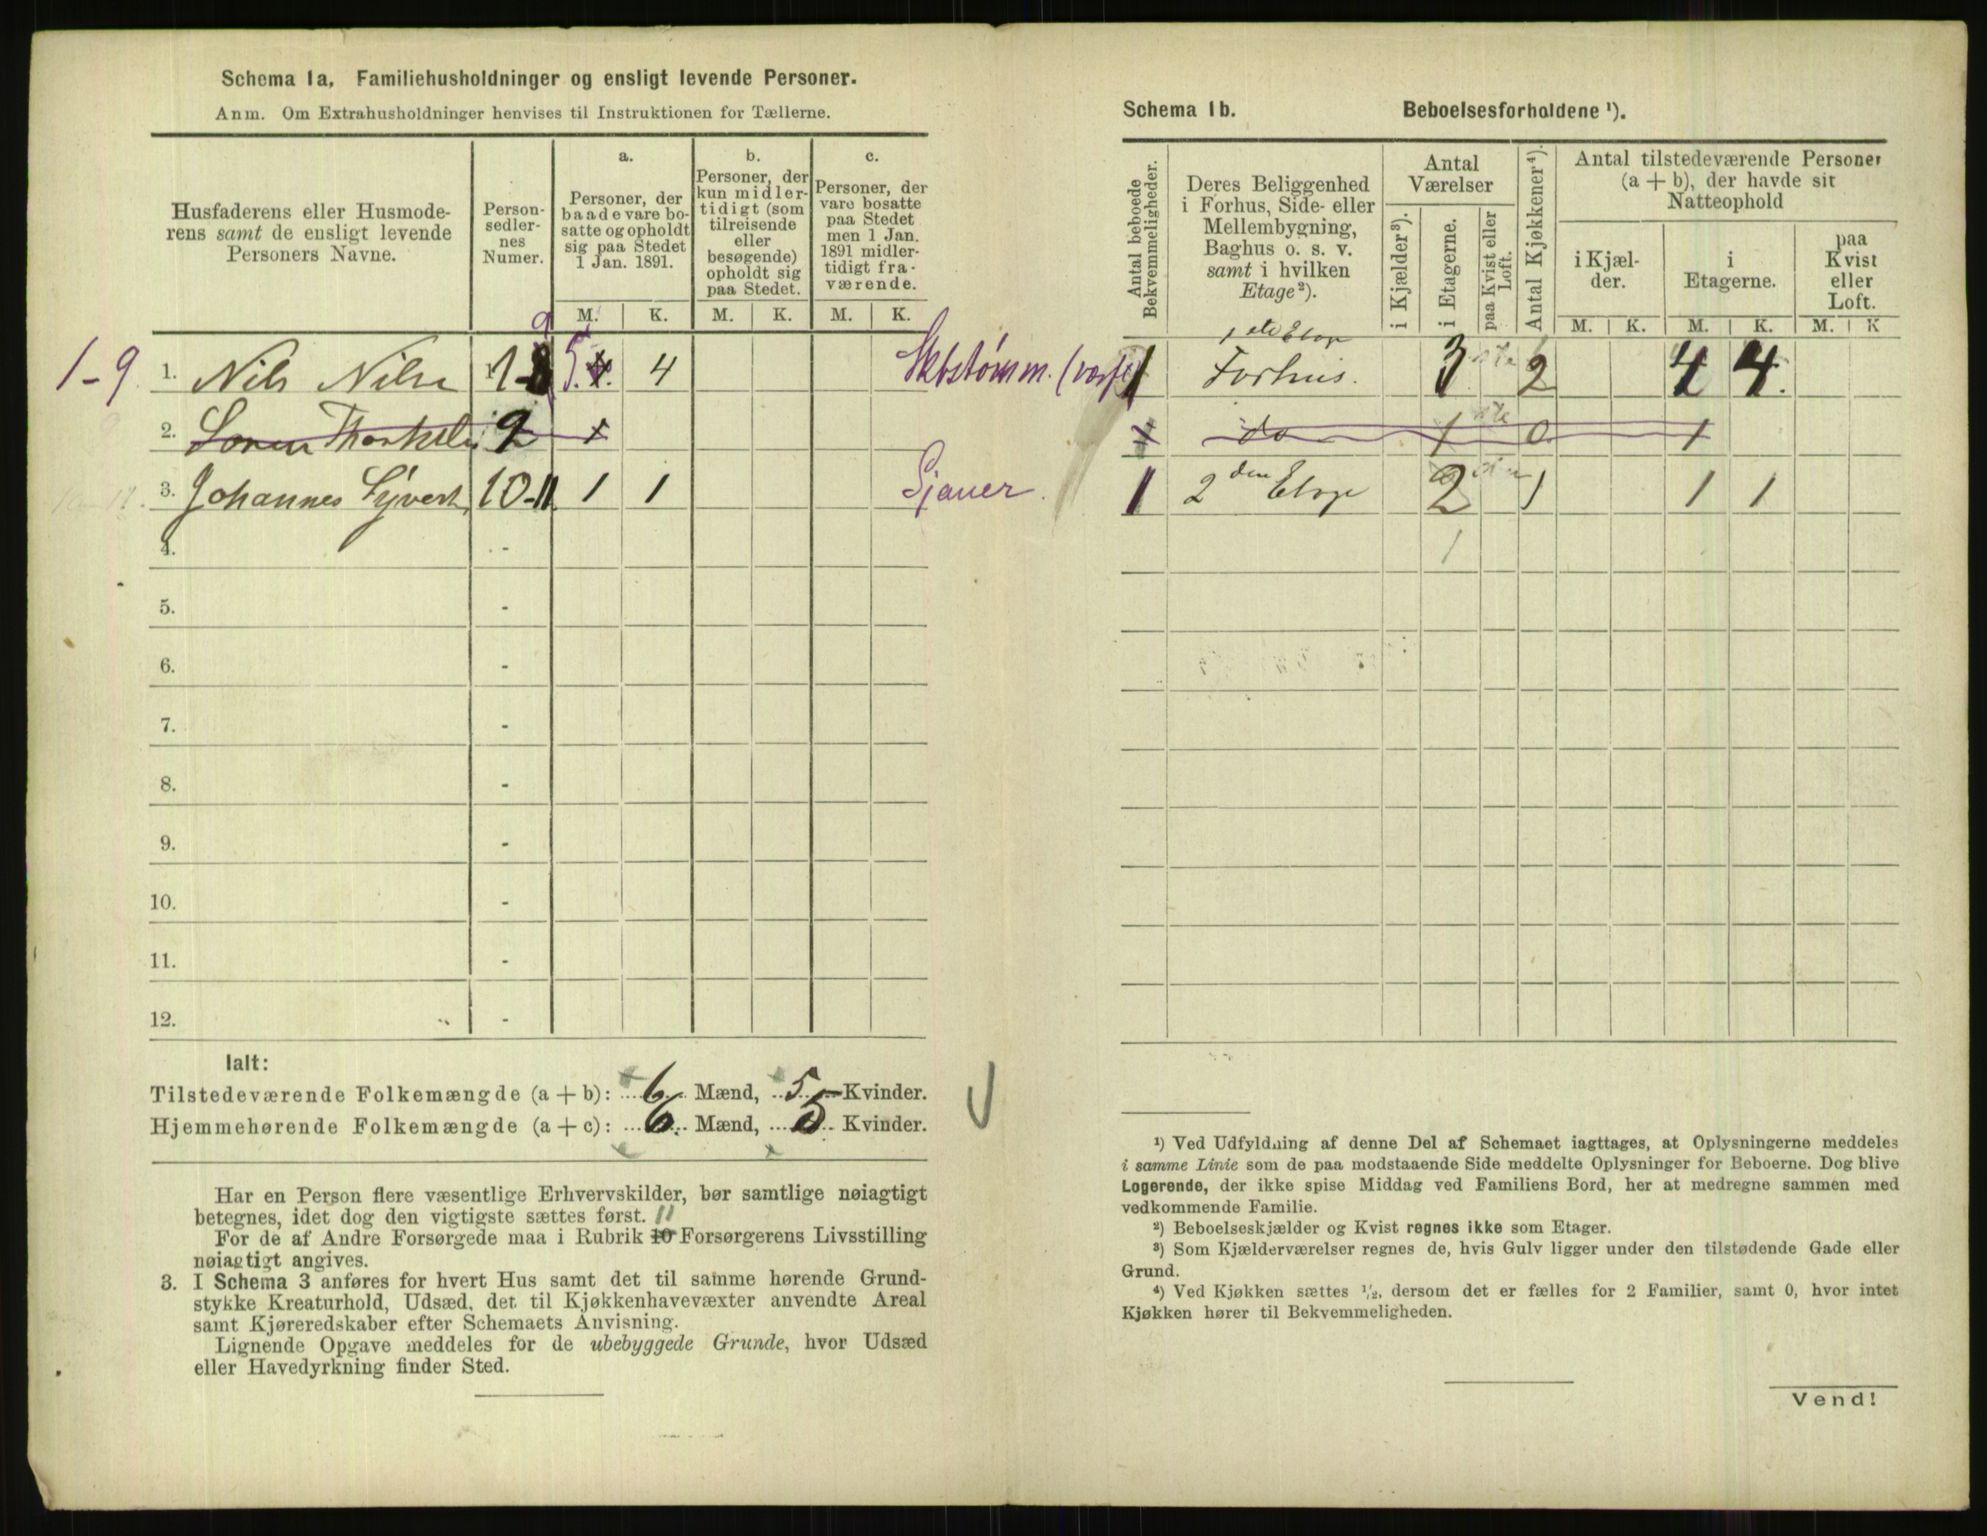 Schema 1a. Familiehusholdninger og ensligt levende Personer.
Anm. Om Extrahusholdninger henvises til Instruktionen for Tællerne.
Husfaderens eller Husmode-
rens samt de ensligt levende
Personers Navne.
Person-
sedler-
nes
Numer.
a.
Personer, der
baade vare bo-
satte og opholdt
sig paa Stedet
1 Jan. 1891.
b.
Personer, der
kun midler-
tidigt (som
tilreisende
eller
besøgende)
opholdt sig
paa Stedet.
c.
Personer, der
vare bosatte
paa Stedet
men 1 Jan.
1891 midler-
tidigt fra-
værende.
M. K. M. K. M. K.
1-9 1. Nils Nilse 1-8 9 5 4 4 Skbstømm.
2. Soren Thorkels 9 1
3. Johannes Syvert 10-11 1 1 Sjauer.
4. -
5. -
6. -
7. -
8. -
9. -
10. -
11. -
12. -
Ialt:
Tilstedeværende Folkemængde (a + b): 6 Mænd, 5 Kvinder.
Hjemmehørende Folkemængde (a + c): 6 Mænd, 5 Kvinder.
Har en Person flere væsentlige Erhvervskilder, bør samtlige nøiagtigt
betegnes, idet dog den vigtigste sættes først. 11
For de af Andre Forsørgede maa i Rubrik 10 Forsørgerens Livsstilling
nøiagtigt angives.
3. I Schema 3 anføres for hvert Hus samt det til samme hørende Grund-
stykke Kreaturhold, Udsæd, det til Kjøkkenhavevæxter anvendte Areal
samt Kjøreredskaber efter Schemaets Anvisning.
Lignende Opgave meddeles for de ubebyggede Grunde, hvor Udsæd
eller Havedyrkning finder Sted.
Schema 1b. Beboelsesforholdene ¹).
Antal beboede
Bekvemmeligheder.
Deres Beliggenhed
i Forhus, Side- eller
Mellembygning,
Baghus o. s. v.
samt i hvilken
Etage²).
Antal
Værelser
i Kjælder³).
i Etagerne.
paa Kvist eller
Loft.
Antal Kjøkkener⁴).
Antal tilstedeværende Personer
(a + b), der havde sit
Natteophold
i Kjæl-
der.
i
Etagerne.
paa
Kvist
eller
Loft.
M. K. M. K. M. K
1ste Etage
1 Forhus. 3 ste 2 4 4.
1 do 1 ste 0 1
1 2den Etage 2 den 1 1 1
1
¹) Ved Udfyldning af denne Del af Schemaet iagttages, at Oplysningerne meddeles
i samme Linie som de paa modstaaende Side meddelte Oplysninger for Beboerne. Dog blive
Logerende, der ikke spise Middag ved Familiens Bord, her at medregne sammen med
vedkommende Familie.
²) Beboelseskjælder og Kvist regnes ikke som Etager.
³) Som Kjælderværelser regnes de, hvis Gulv ligger under den tilstødende Gade eller
Grund.
⁴) Ved Kjøkken sættes ½, dersom det er fælles for 2 Familier, samt 0, hvor intet
Kjøkken hører til Bekvemmeligheden.
Vend!